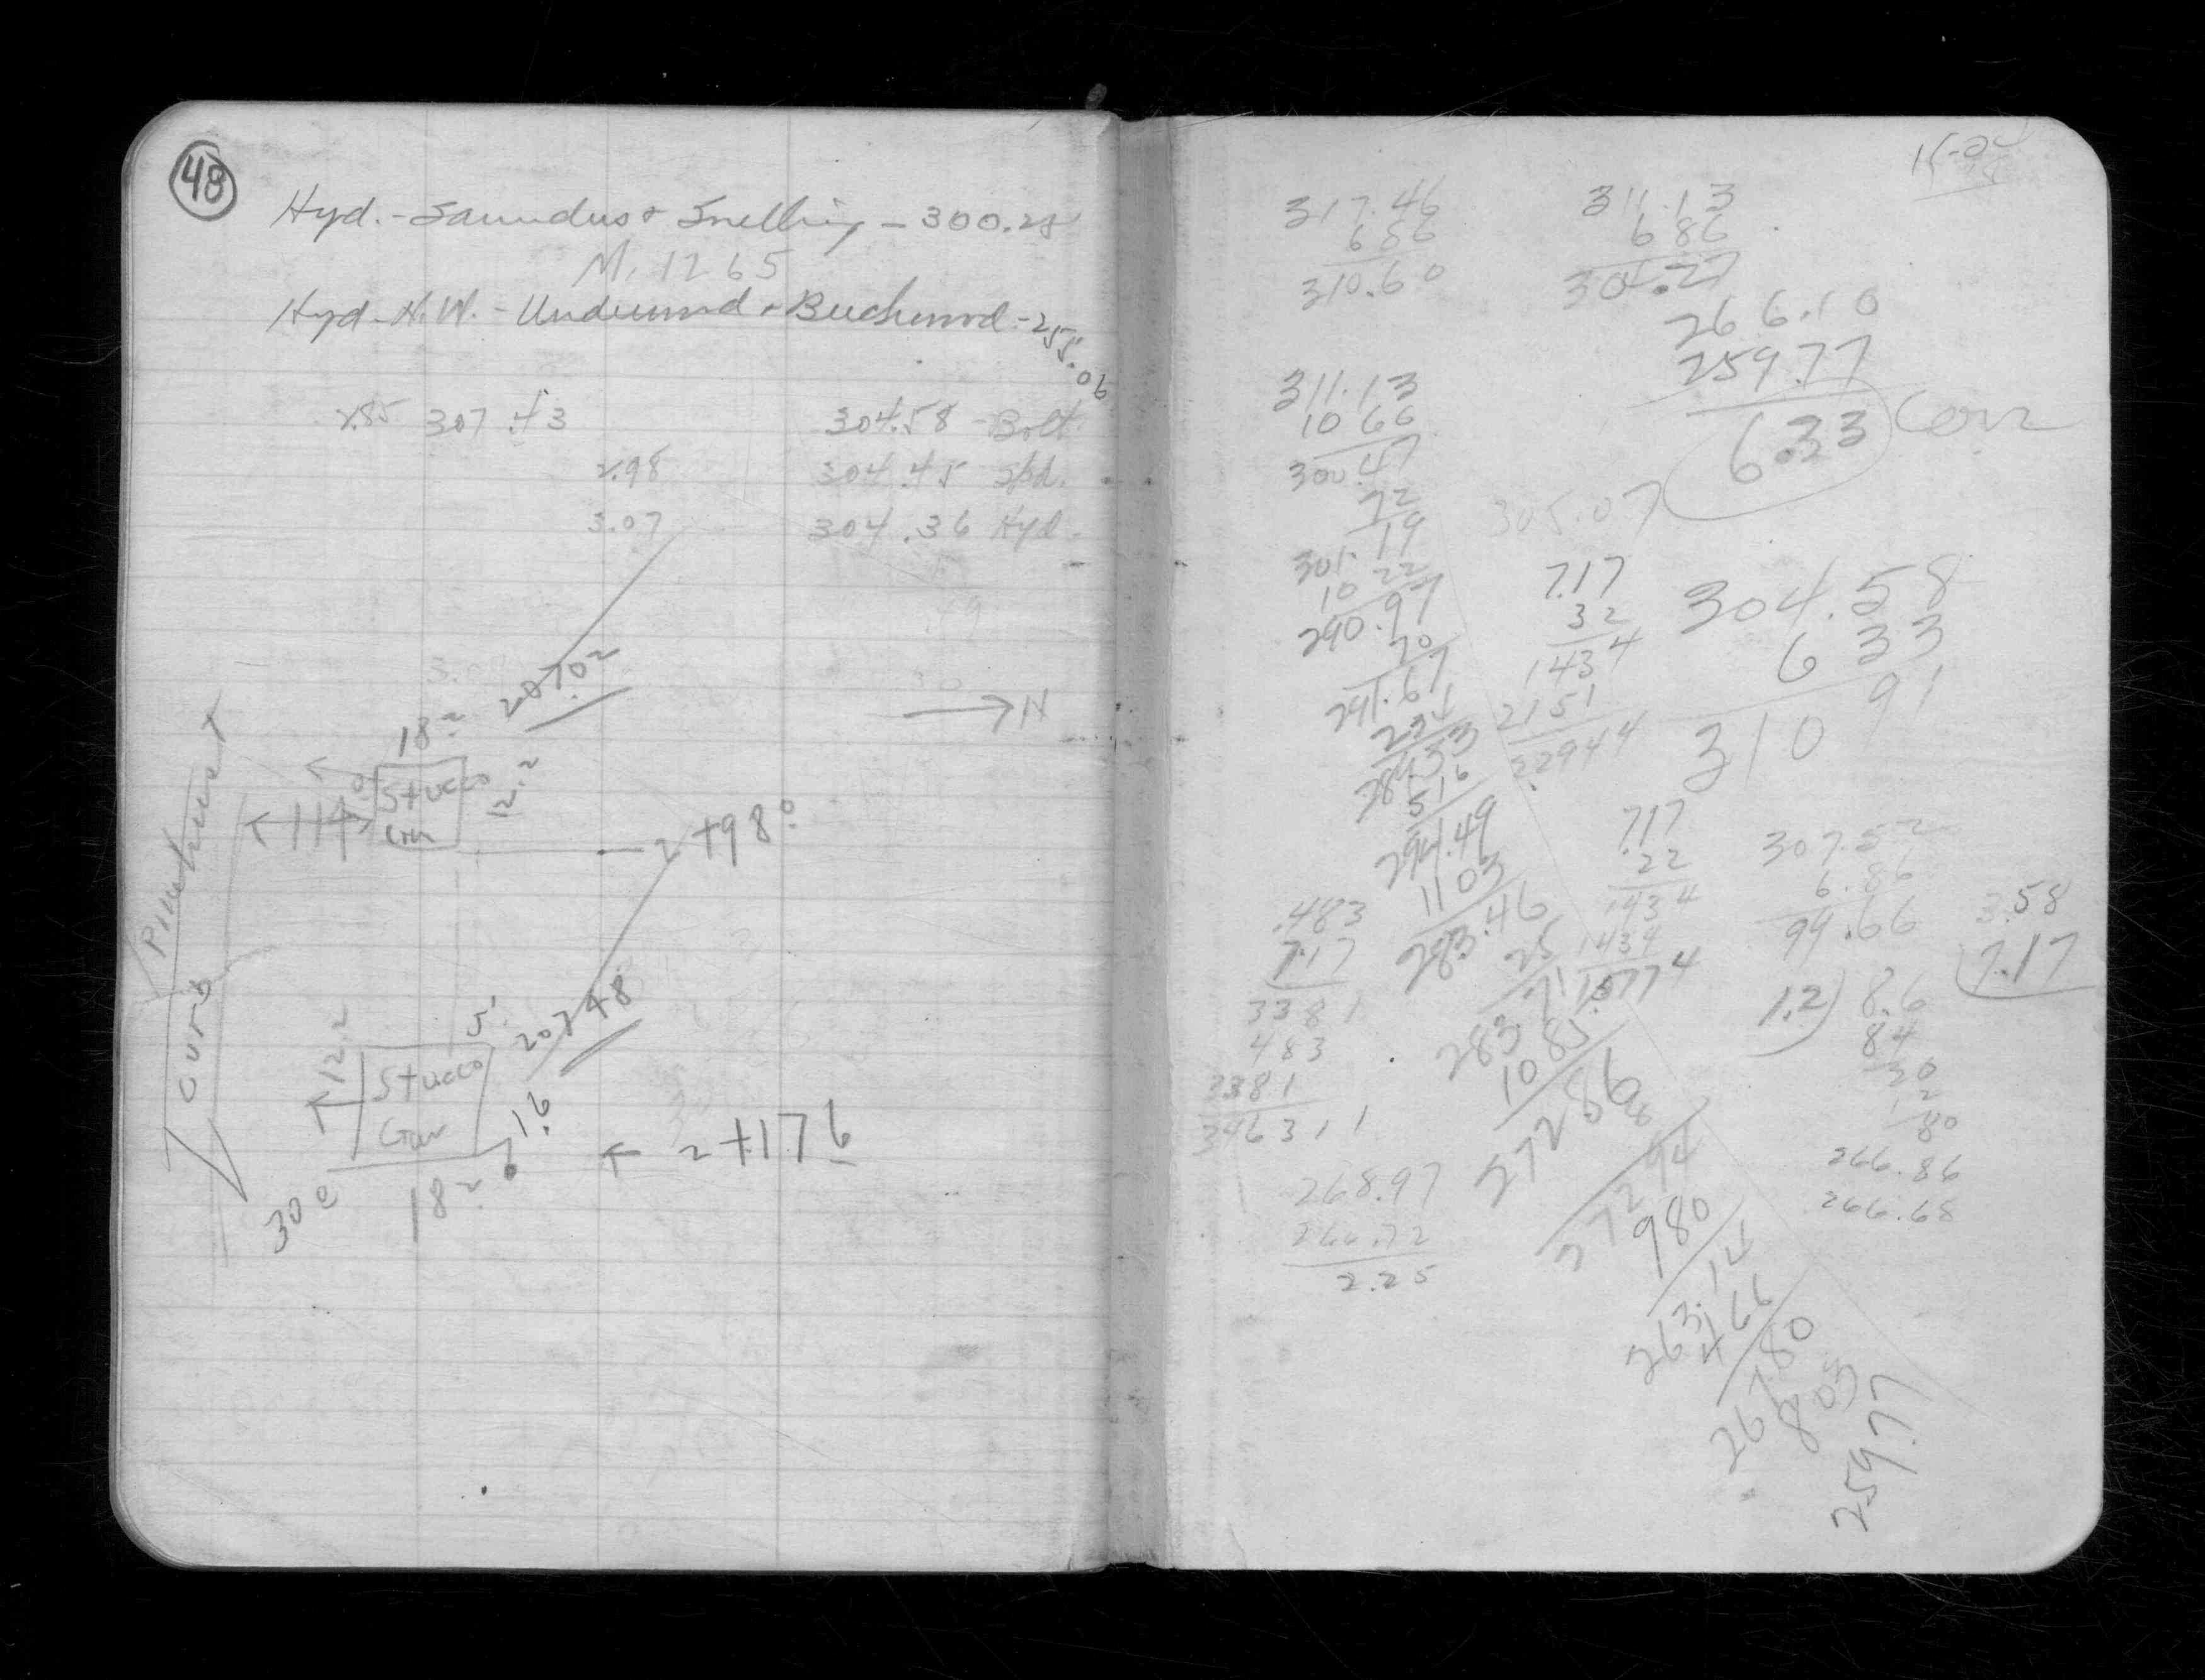 48
Hyd. - Saunders & Snelling - 300.28
M. 1265
Hyd - N.W. - Underwood & Beechwood - 255.06
2.85 307.43 304.58 - Bolt
2.98 304.45 Spd.
3.07 304.36 Hyd.
2070²
→ N
18²
Stucco
Gar
2.²
114⁰
2+98⁰
Pinehurst
Curb
12.2
5'
Stucco
Gar
20748
1.6
2+176
18²
30
317.46
686
310.60
311.13
686
304.27
266.10
259.77
6.33 Corr
311.13
10 66
300.47
72
19
305.07
301.
10 22
290.97
70
291.67
7.17
32
1434
2151
22944
304.58
6 33
310 91
284.33
516
294.49
1103
283.46
25
283.71
1085
27286
08
27294
980
263.14
466
267.80
803
259.77
7.17
22
1434
1434
15774
307.52
6.86
99.66
3.58
7.17
1.2) 8.6
84
20
12
80
266.86
266.68
.483
7.17
3381
483
3381
346311
268.97
266.72
2.25